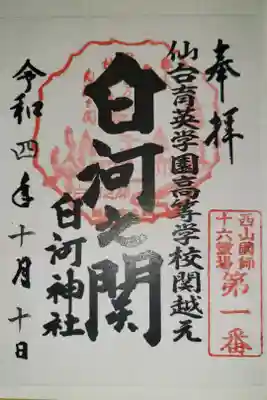 奉拝
仙台育英学園高等学校関越元
白河之関
白河神社
令和四年十月十日
西山國師
十六霊場
第一番